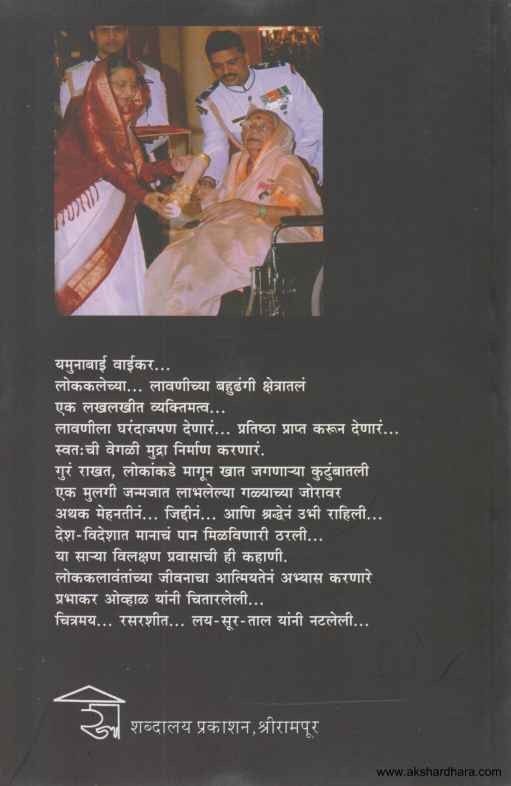 यमुनाबाई वाईकर...
लोककलेच्या... लावणीच्या बहुढंगी क्षेत्रातलं
एक लखलखीत व्यक्तिमत्व...
लावणीला घरंदाजपण देणारं... प्रतिष्ठा प्राप्त करून देणारं...
स्वतःची वेगळी मुद्रा निर्माण करणारं.
गुरं राखत, लोकांकडे मागून खात जगणाऱ्या कुटुंबातली
एक मुलगी जन्मजात लाभलेल्या गळ्याच्या जोरावर
अथक मेहनतीनं... जिद्दीनं... आणि श्रद्धेनं उभी राहिली...
देश-विदेशात मानाचं पान मिळविणारी ठरली...
या साऱ्या विलक्षण प्रवासाची ही कहाणी.
लोककलावंतांच्या जीवनाचा आत्मियतेनं अभ्यास करणारे
प्रभाकर ओव्हाळ यांनी चितारलेली...
चित्रमय... रसरशीत... लय-सूर-ताल यांनी नटलेली...
शब्दालय प्रकाशन,श्रीरामपूर
www.akshardhara.com